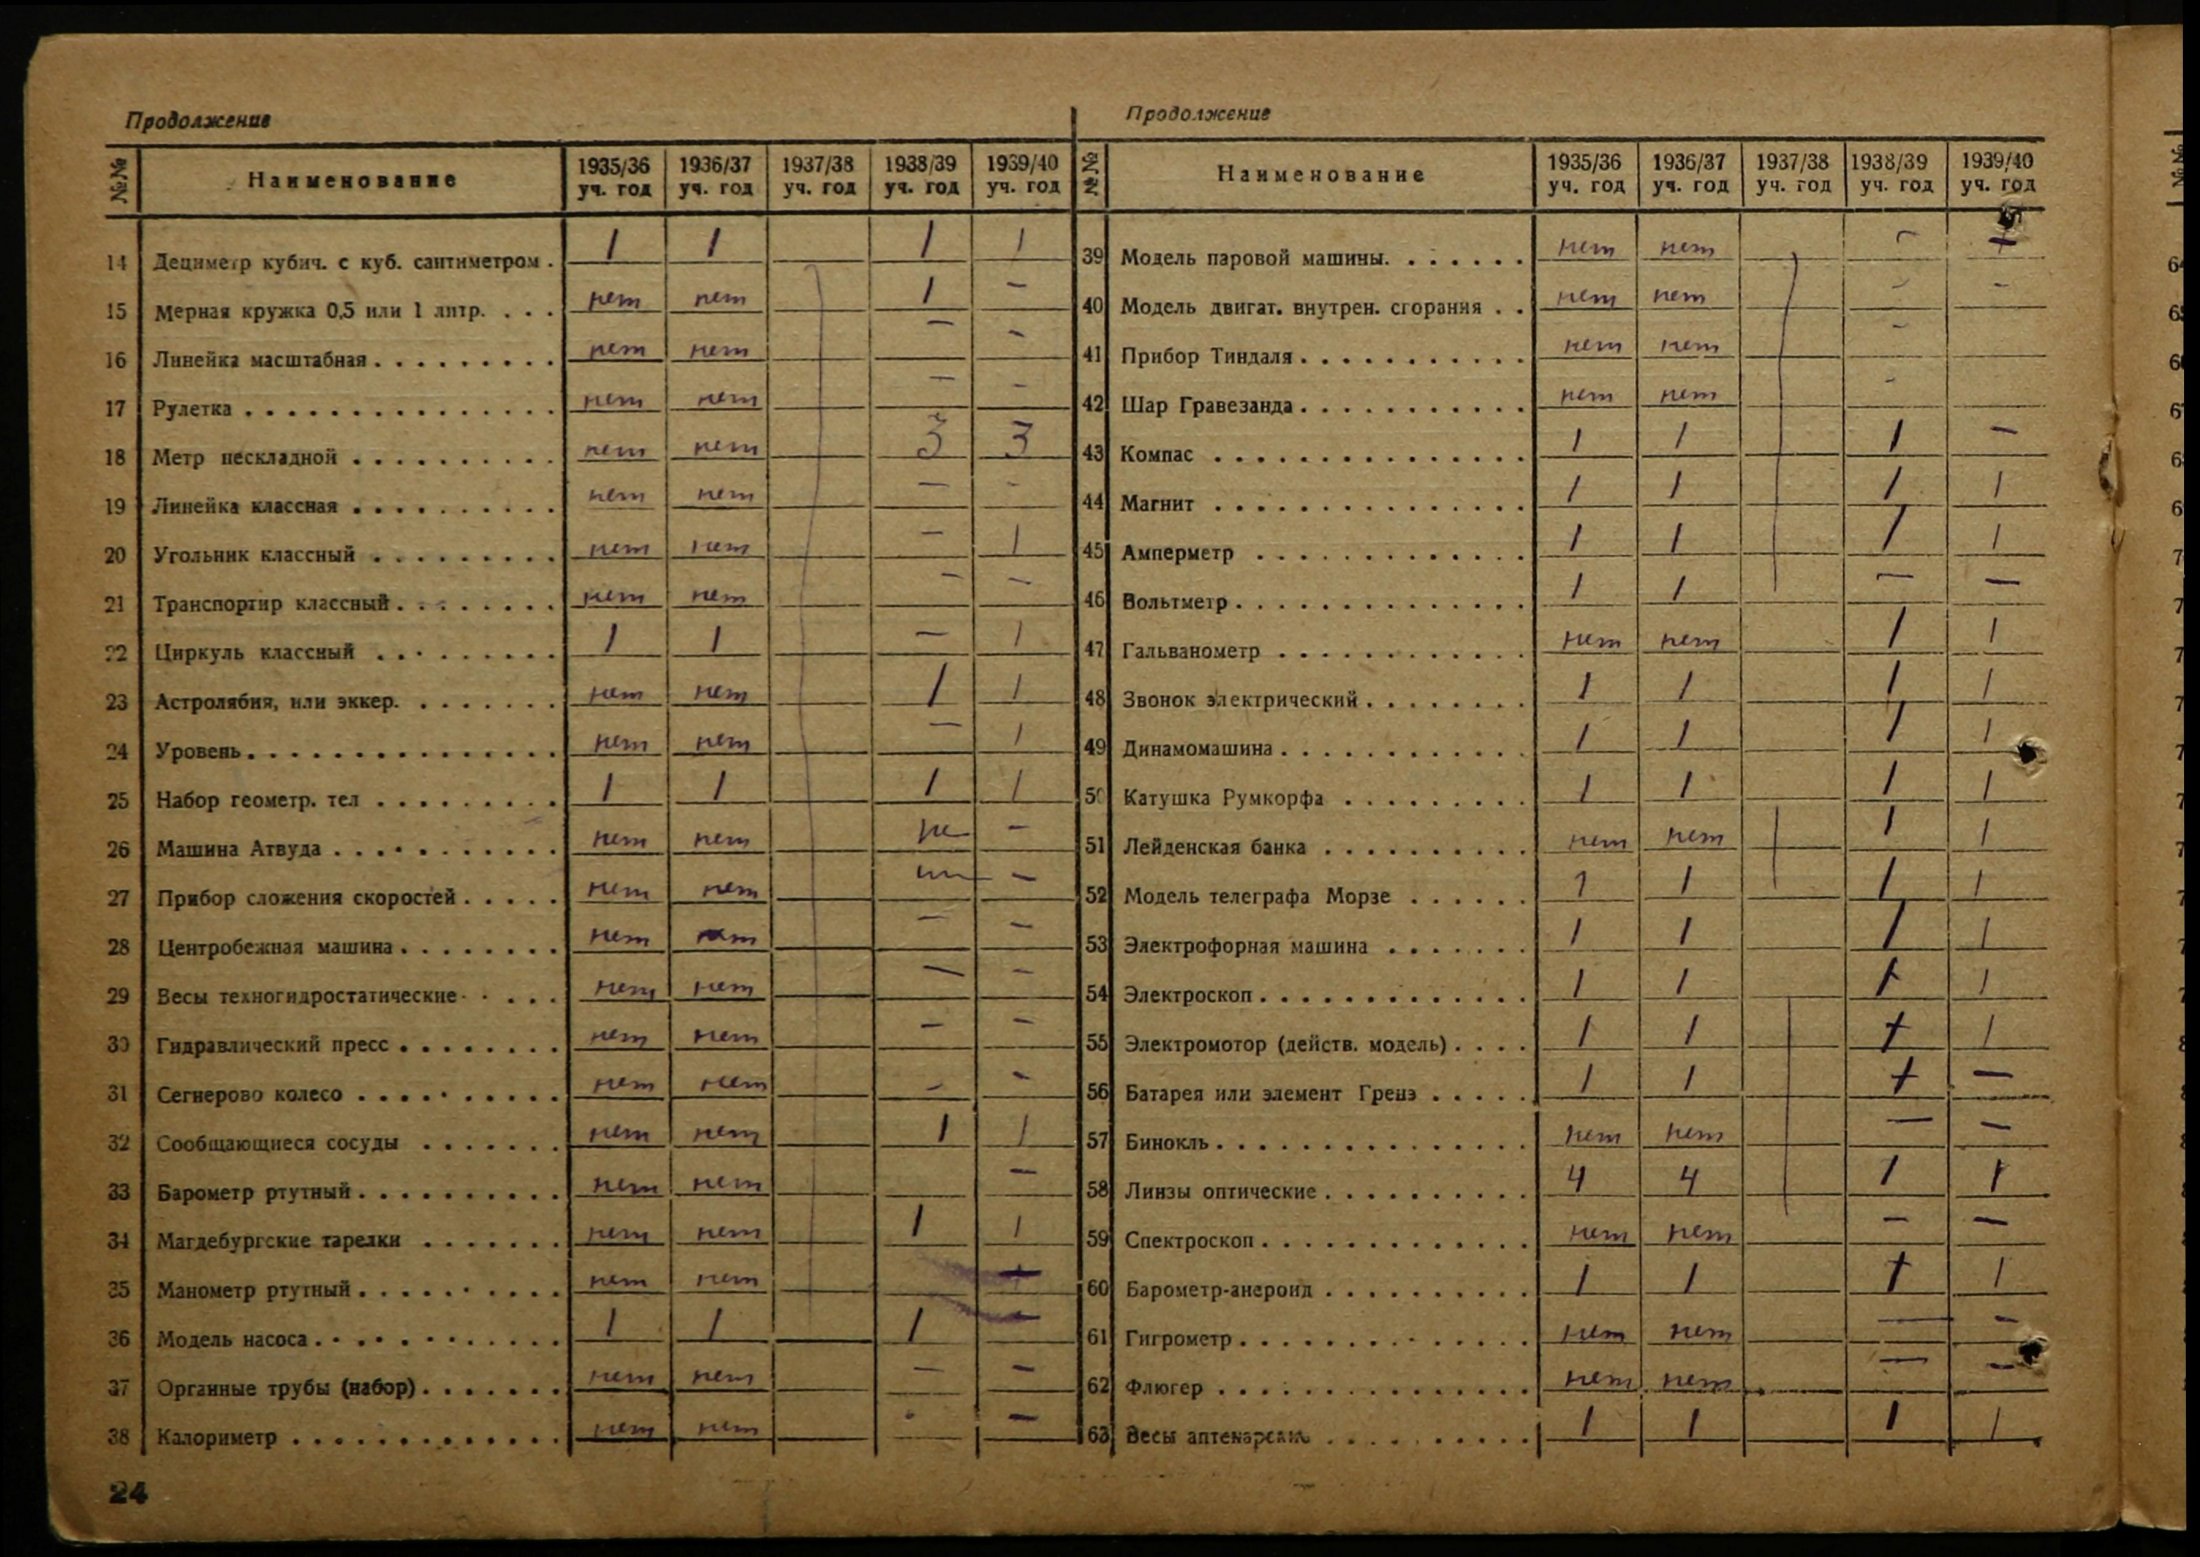 Продолжение
№№ Наименование 1935/36 уч. год 1936/37 уч. год 1937/38 уч. год 1938/39 уч. год 1939/40 уч. год
14 Дециметр кубич. с куб. сантиметром . 1 1 1 1
15 Мерная кружка 0,5 или 1 литр. . . . нет нет 1 –
16 Линейка масштабная . . . . . . . . . нет нет – –
17 Рулетка . . . . . . . . . . . . . . . нет нет – –
18 Метр нескладной . . . . . . . . . . нет нет 3 3
19 Линейка классная . . . . . . . . . . нет нет – –
20 Угольник классный . . . . . . . . . нет нет – 1
21 Транспортир классный . . . . . . . . нет нет – –
22 Циркуль классный . . . . . . . . . 1 1 – 1
23 Астролябия, или эккер. . . . . . . . нет нет 1 1
24 Уровень . . . . . . . . . . . . . . . нет нет – 1
25 Набор геометр. тел . . . . . . . . . 1 1 1 1
26 Машина Атвуда . . . . . . . . . . . нет нет –
27 Прибор сложения скоростей . . . . . нет нет –
28 Центробежная машина . . . . . . . . нет нет – –
29 Весы техногидростатические . . . . . нет нет – –
30 Гидравлический пресс . . . . . . . . нет нет – –
31 Сегнерово колесо . . . . . . . . . . нет нет – –
32 Сообщающиеся сосуды . . . . . . . нет нет 1 1
33 Барометр ртутный . . . . . . . . . . нет нет –
34 Магдебургские тарелки . . . . . . . нет нет 1 1
35 Манометр ртутный . . . . . . . . . . нет нет
36 Модель насоса . . . . . . . . . . . . 1 1 1 –
37 Органные трубы (набор) . . . . . . . нет нет – –
38 Калориметр . . . . . . . . . . . . . нет нет –
24
Продолжение
№№ Наименование 1935/36 уч. год 1936/37 уч. год 1937/38 уч. год 1938/39 уч. год 1939/40 уч. год
39 Модель паровой машины. . . . . . . нет нет –
40 Модель двигат. внутрен. сгорания . . нет нет – –
41 Прибор Тиндаля . . . . . . . . . . . нет нет –
42 Шар Гравезанда . . . . . . . . . . . нет нет –
43 Компас . . . . . . . . . . . . . . . 1 1 1 –
44 Магнит . . . . . . . . . . . . . . . 1 1 1 1
45 Амперметр . . . . . . . . . . . . . 1 1 1 1
46 Вольтметр . . . . . . . . . . . . . . 1 1 – –
47 Гальванометр . . . . . . . . . . . . нет нет 1 1
48 Звонок электрический . . . . . . . . 1 1 1 1
49 Динамомашина . . . . . . . . . . . . 1 1 1 1
50 Катушка Румкорфа . . . . . . . . . 1 1 1 1
51 Лейденская банка . . . . . . . . . . нет нет 1 1
52 Модель телеграфа Морзе . . . . . . 1 1 1 1
53 Электрофорная машина . . . . . . . 1 1 1 1
54 Электроскоп . . . . . . . . . . . . . 1 1 1 1
55 Электромотор (действ. модель) . . . . 1 1 + 1
56 Батарея или элемент Гренэ . . . . . 1 1 + –
57 Бинокль . . . . . . . . . . . . . . . нет нет – –
58 Линзы оптические . . . . . . . . . . 4 4 1 1
59 Спектроскоп . . . . . . . . . . . . . нет нет – –
60 Барометр-анероид . . . . . . . . . . 1 1 + 1
61 Гигрометр . . . . . . . . . . . . . . нет нет – –
62 Флюгер . . . . . . . . . . . . . . . нет нет – –
63 Весы аптекарские . . . . . . . . . . 1 1 1 1